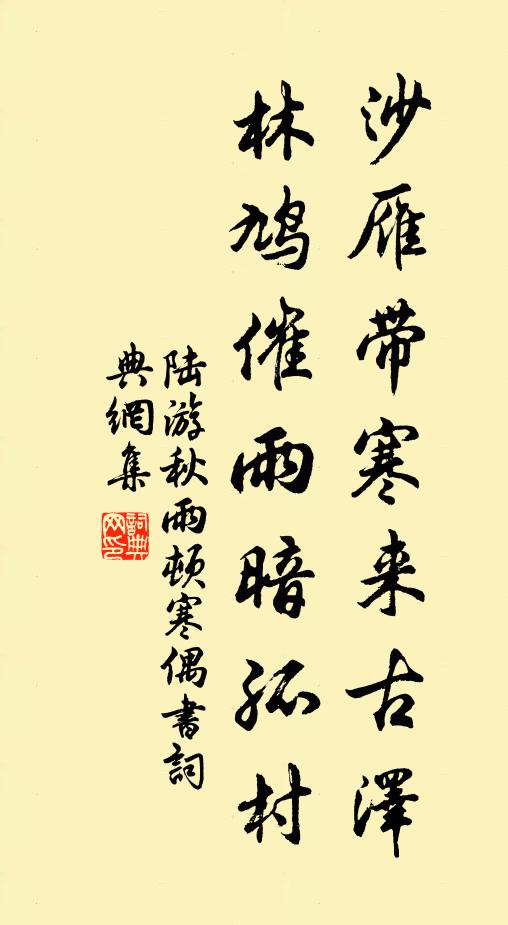 沙雁带寒来古澤
林鸠催雨暗孤村
陆游秋雨顿寒偶書詞
典網集
詞典網印